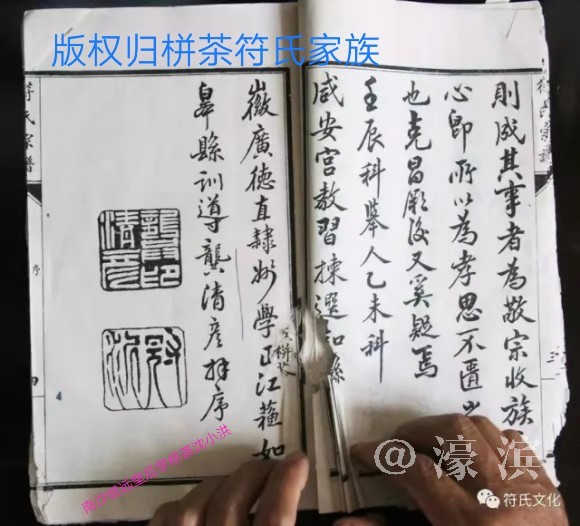 版权归栟茶符氏家族
則成其事者為敬宗收族
心即所以為孝思不匱
也克昌厥後又奚疑焉
壬辰科舉人乙未科
咸安宮教習揀選知縣
徽廣德直隸州學正江蘇如
皐縣訓導龔清彦拜序
符氏宗譜
序
栟茶
@濠滨
符氏文化